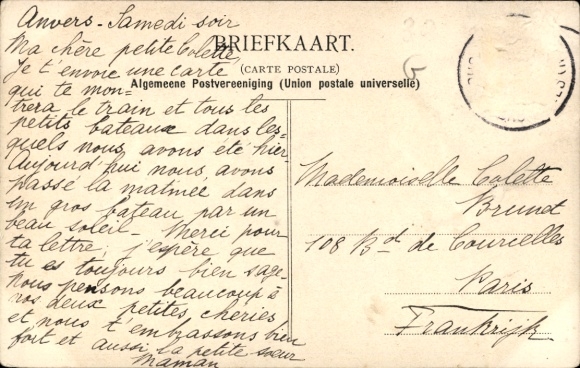 Anvers - Samedi soir
Ma chère petite Colette,
Je t'envoie une carte
qui te mon-
trera le train et tous les
petits bateaux dans les-
quels nous avons été hier
Aujourd'hui nous avons
passé la matinée dans
un gros bateau par un
beau soleil - Merci pour
ta lettre; j'espère que
tu es toujours bien sage -
Nous pensons beaucoup à
nos deux petites chéries
et nous t'embrassons bien
fort et aussi la petite soeur
Maman
BRIEFKAART.
(CARTE POSTALE)
Algemeene Postvereeniging (Union postale universelle)
G
Mademoiselle Colette
Brunet
108 Bd de Courcelles
Paris
Frankrijk